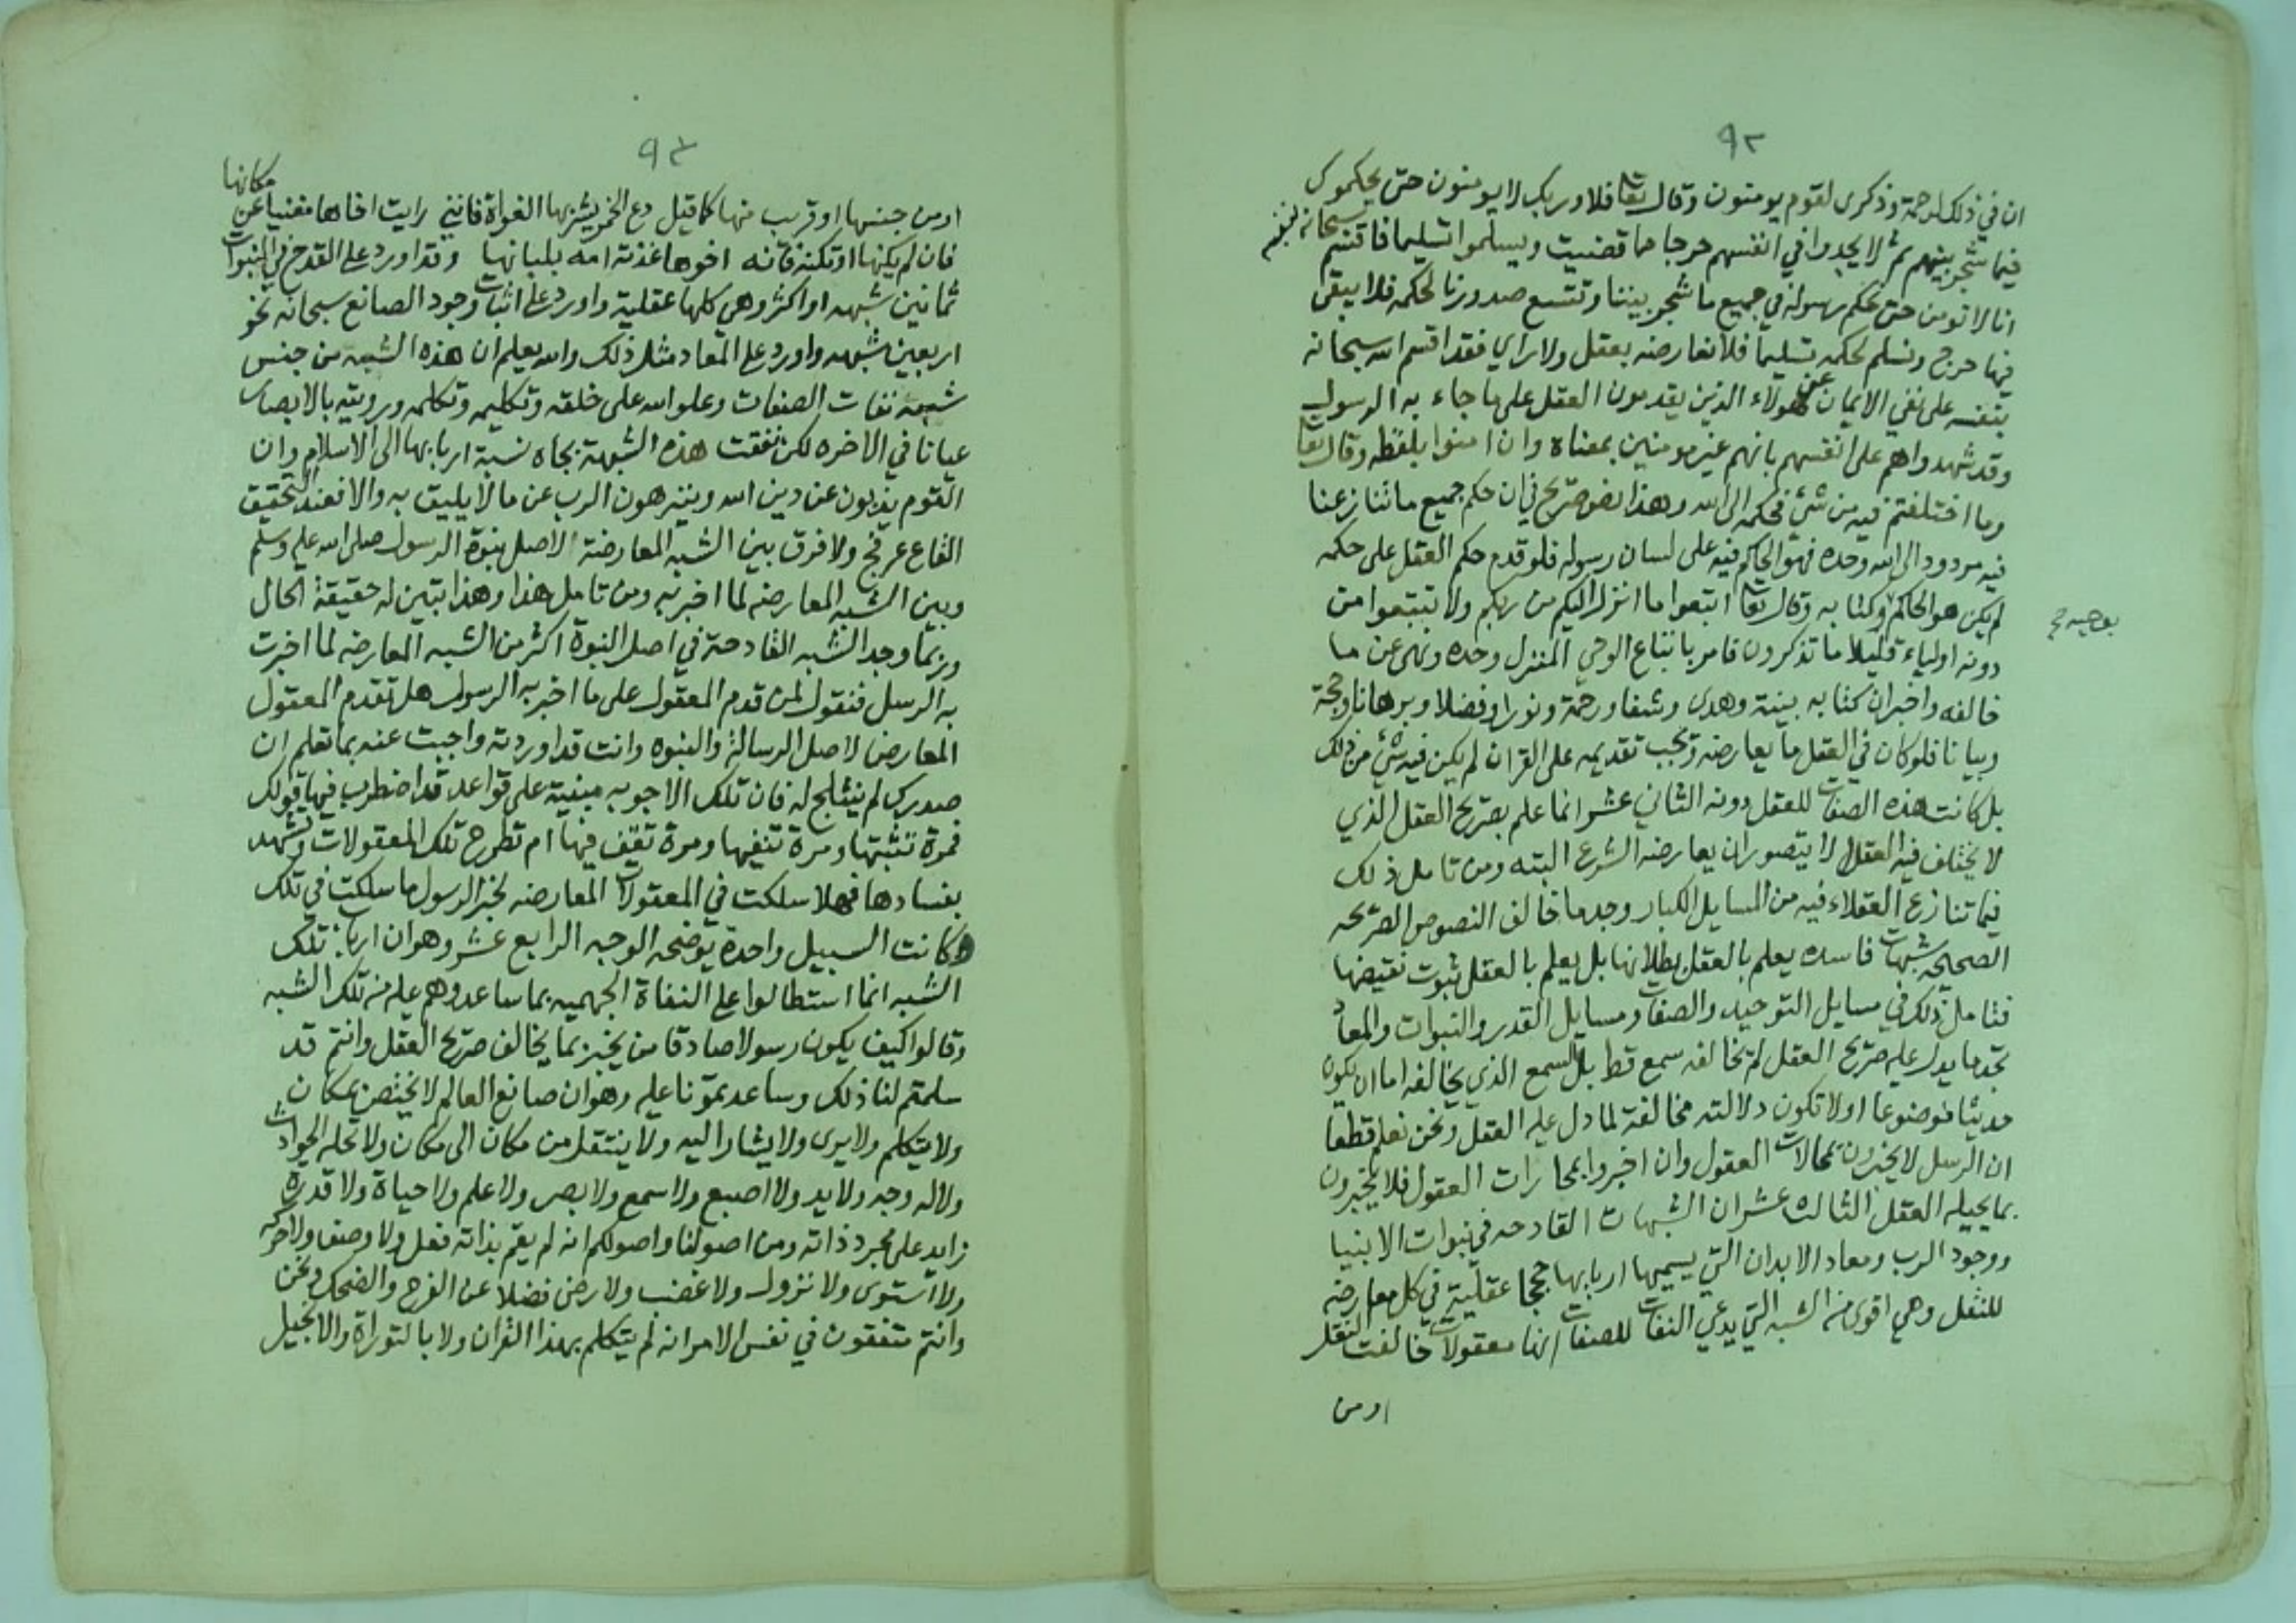 ٩٢
ان في ذلك لرحمة وذكرى لقوم يومنون وقال تعا فلا وربك لا يومنون حتى يحكموك
فيما شجر بينهم ثم لا يجدوا في انفسهم حرجا مما قضيت ويسلموا تسليما فاقسم سبحانه بنفسه
انا لا نومن حتى نحكم رسوله في جميع ما شجر بيننا وتتسع صدورنا لحكمه فلا يبقى
فيها حرج ونسلم لحكمه تسليما فلا نعارضه بعقل ولا راي فقد اقسم الله سبحانه
بنفسه على نفي الايمان عن هولاء الذين يقدمون العقل على ما جاء به الرسول
وقد شهدوا هم على انفسهم بانهم غير مومنين بمعناه وان امنوا بلفظه وقال تعا
وما اختلفتم فيه من شئ فحكمه الى الله وهذا نص صريح في ان حكم جميع ما تنازعنا
فيه مردود الى الله وحده فهو الحاكم فيه على لسان رسوله فلو قدم حكم العقل على حكمه
لم يكن هو الحاكم وكتابه وقال تعا اتبعوا ما انزل اليكم من ربكم ولا تتبعوا من
دونه اولياء قليلا ما تذكرون فامر باتباع الوحي المنزل وحده ونهى عن ما
خالفه واخبر ان كتابه بينة وهدى وشفا ورحمة ونورا وفضلا وبرهانا وحجة
وبيانا فلو كان في العقل ما يعارضه وتجب تقديمه على القران لم يكن فيه شئ من ذلك
بل كانت هذه الصفات للعقل دونه الثاني عشر انما علم بصريح العقل الذي
لا يختلف فيه العقلا لا يتصور ان يعارضه الشرع البته ومن تامل ذلك
فيما تنازع العقلاء فيه من المسايل الكبار وجد ما خالف النصوص الصريحه
الصحيحه شبهات فاسده يعلم بالعقل بطلانها بل يعلم بالعقل ثبوت نقيضها
فتامل ذلك في مسايل التوحيد والصفات ومسايل القدر والنبوات والمعاد
تجد ما يدل عليه صريح العقل لم يخالفه سمع قط بل السمع الذي يخالفه اما ان يكون
حديثا موضوعا او لا تكون دلالته مخالفة لما دل عليه العقل ونحن نعلم قطعا
ان الرسل لا يخبرون بمحالات العقول وان اخبروا بمحارات العقول فلا يخبرون
بما يحيله العقل الثالث عشر ان الشبهات القادحه في نبوات الانبيا
ووجود الرب ومعاد الابدان التي يسميها اربابها حججا عقلية في كل معارضه
للنقل وهي اقوى من الشبه التي يدعي النفات للصفات انها معقولات خالفت النقل
او من
٩٣
او من جنسها او قريب منها كما قيل دع الخمر يشربها الغواة فانني رايت اخاها مغنيا عن مكانها
فان لم يكنها او تكنه فانه اخوها غذته امه بلبانها وقد اورد على القدح في النبوات
ثمانين شبهه او اكثر وهي كلها عقلية واورد على اثبات وجود الصانع سبحانه نحو
اربعين شبهه واورد على المعاد مثل ذلك والله يعلم ان هذه الشبه من جنس
شبهة نفات الصفات وعلو الله على خلقه وتكليمه وتكلمه ورويته بالابصار
عيانا في الاخره لكن نفقت هذه الشبهة بجاه نسبة اربابها الى الاسلام وان
القوم يذبون عن دين الله وينزهون الرب عن ما لا يليق به والا فعند التحقيق
القاع عرفج ولا فرق بين الشبه المعارضة لاصل نبوة الرسول صلى الله عليه وسلم
وبين الشبه المعارضه لما اخبر به ومن تامل هذا وهذا تبين له حقيقة الحال
وربما وجد الشبه القادحة في اصل النبوة اكثر من الشبه المعارضه لما اخبرت
به الرسل فنقول لمن قدم المعقول على ما اخبر به الرسول هل تقدم المعقول
المعارض لاصل الرسالة والنبوه وانت قد اوردته واجبت عنه بما تعلم ان
صدرك لم يثلج له فان تلك الاجوبه مبنية على قواعد قد اضطرب فيها قولك
فمرة تثبتها ومرة تنفيها ومرة تقف فيها ام تطرح تلك المعقولات وتشهد
بفسادها فهلا سلكت في المعقولات المعارضه لخبر الرسول ما سلكت في تلك
وكانت السبيل واحدة يوضحه الوجه الرابع عشر وهو ان ارباب تلك
الشبه انما استطالوا على النفاة الجهميه بما ساعدوهم عليه من تلك الشبه
وقالوا كيف يكون رسولا صادقا من يخبر بما يخالف صريح العقل وانتم قد
سلمتم لنا ذلك وساعدتمونا عليه وهو ان صانع العالم لا يختص بمكان
ولا يتكلم ولا يرى ولا يشار اليه ولا ينتقل من مكان الى مكان ولا تحله الحوادث
ولا له وجه ولا يد ولا اصبع ولا سمع ولا بصر ولا علم ولا حياة ولا قدرة
زايد على مجرد ذاته ومن اصولنا واصولكم انه لم يقم بذاته فعل ولا وصف ولا حركه
ولا استوى ولا نزول ولا غضب ولا رضى فضلا عن الفرح والضحك ونحن
وانتم متفقون في نفس الامر انه لم يتكلم بهذا القران ولا بالتوراة والانجيل